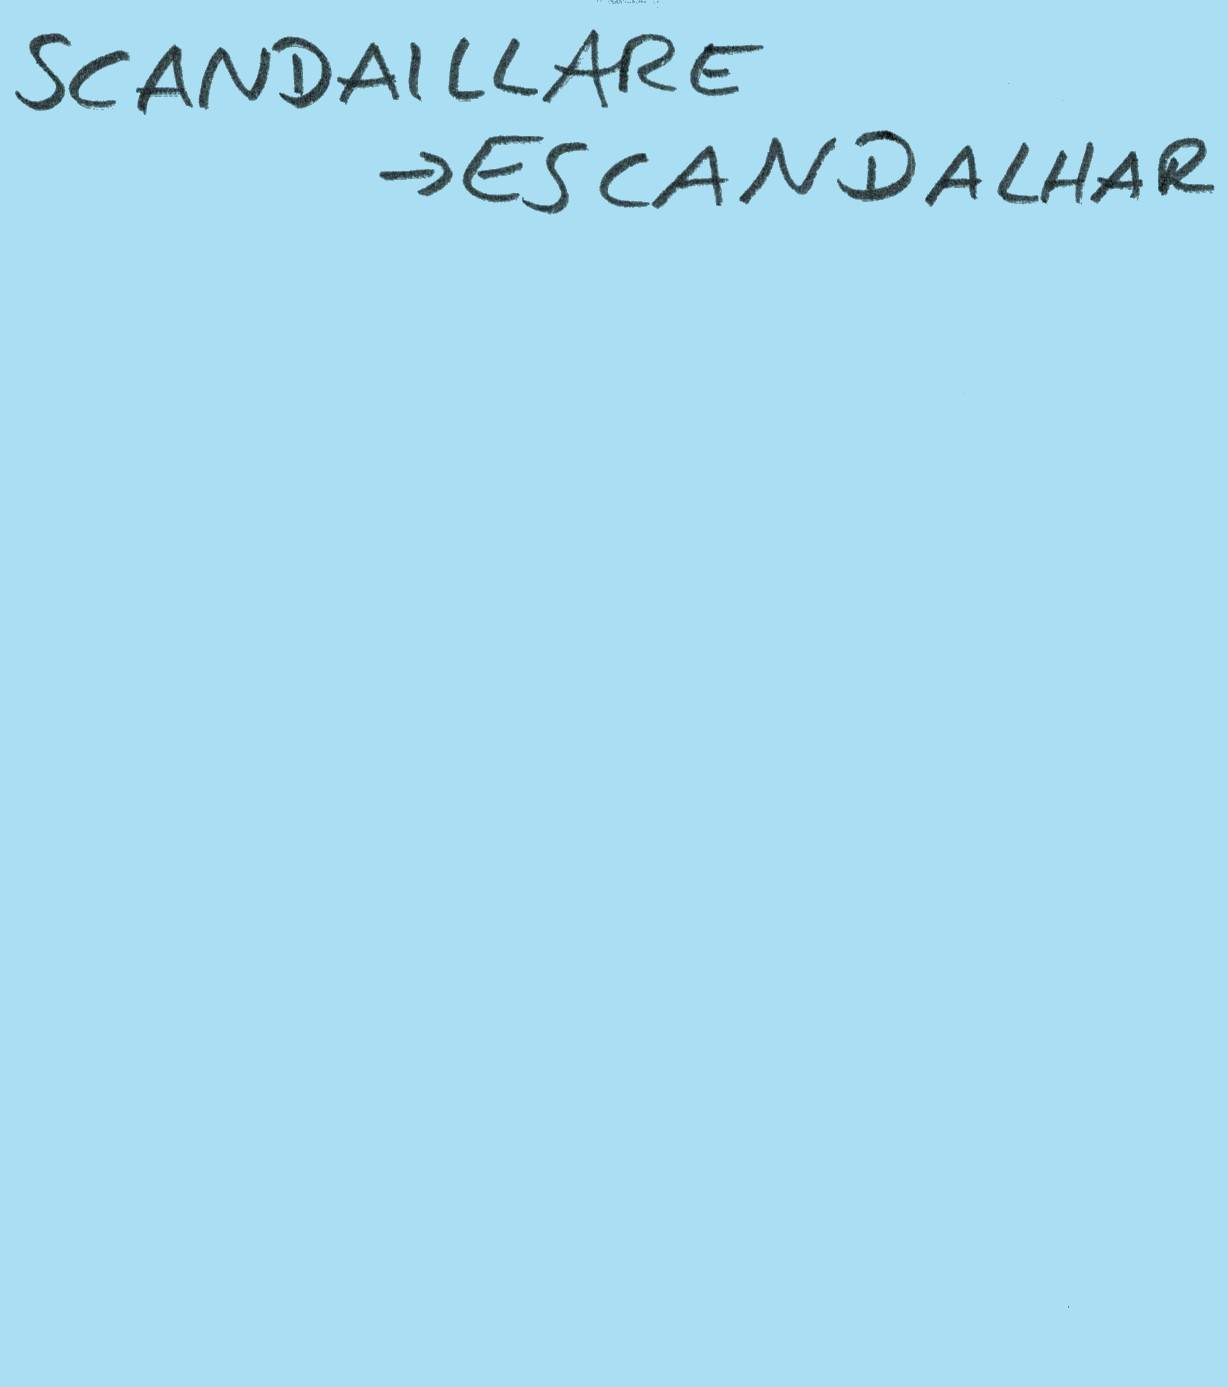 SCANDAILLARE
→ESCANDALHAR